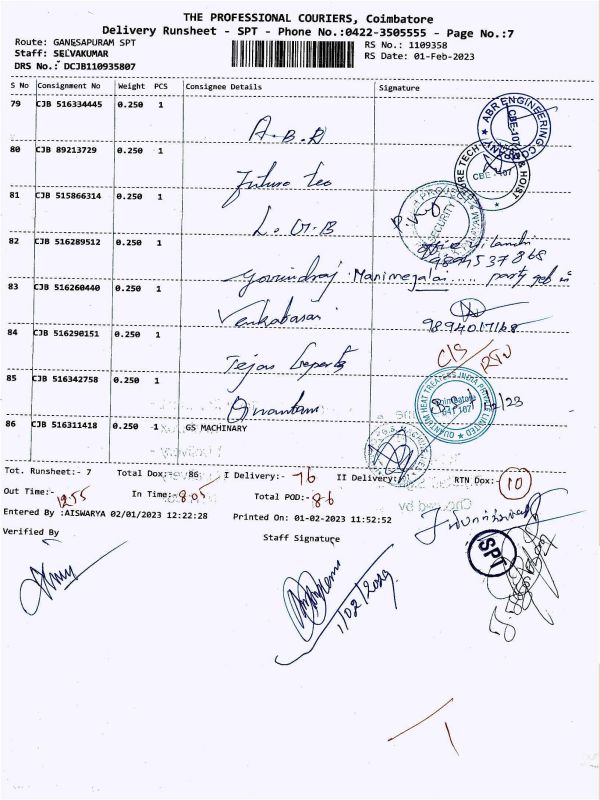 THE PROFESSIONAL COURIERS, Coimbatore
Delivery Runsheet - SPT - Phone No.:0422-3505555 - Page No.:7
Route: GANESAPURAM SPT
Staff: SELVAKUMAR
DRS No.: DCJB110935807
RS No.: 1109358
RS Date: 01-Feb-2023
S No Consignment No Weight PCS Consignee Details Signature
79 CJB 516334445 0.250 1 A.B.R
ABR ENGINEERING COMPANY
80 CJB 89213729 0.250 1 Future Tec
& HOIST
81 CJB 515866314 0.250 1 L.G.B
SECURITY
82 CJB 516289512 0.250 1 Govindraj Manimegalai
83 CJB 516260440 0.250 1 Venkatasai
9894017168
84 CJB 516290151 0.250 1 Tejas
C/S RTN
85 CJB 516342758 0.250 1 Quantum
QUANTUM HEAT TREATERS INDIA PRIVATE LIMITED
Coimbatore
641 107
86 CJB 516311418 0.250 1 GS MACHINARY
Tot. Runsheet:- 7 Total Dox: 86 I Delivery:- 76 II Delivery:- RTN Dox:- 10
Out Time:- 12.55 In Time:- 8.05 Total POD:- 86
Entered By :AISWARYA 02/01/2023 12:22:28 Printed On: 01-02-2023 11:52:52
Verified By Staff Signature
SPT